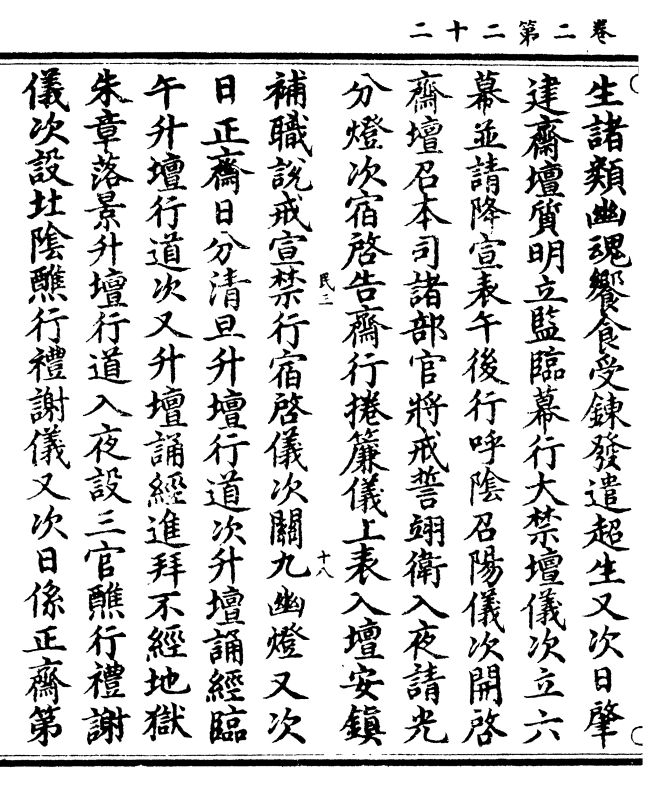 卷二第二十二
生諸類幽魂饗食受鍊發遣超生又次日肇
建齋壇質明立監臨幕行大禁壇儀次立六
幕並請降宣表午後行呼陰召陽儀次開啓
齋壇召本司諸部官將戒誓翊衛入夜請光
分燈次宿啓告齋行捲簾儀上表入壇安鎮
民三
十八
補職說戒宣禁行宿啓儀次關九幽燈又次
日正齋日分清旦升壇行道次升壇誦經臨
午升壇行道次又升壇誦經進拜不經地獄
朱章落景升壇行道入夜設三官醮行禮謝
儀次設社陰醮行禮謝儀又次日係正齋第